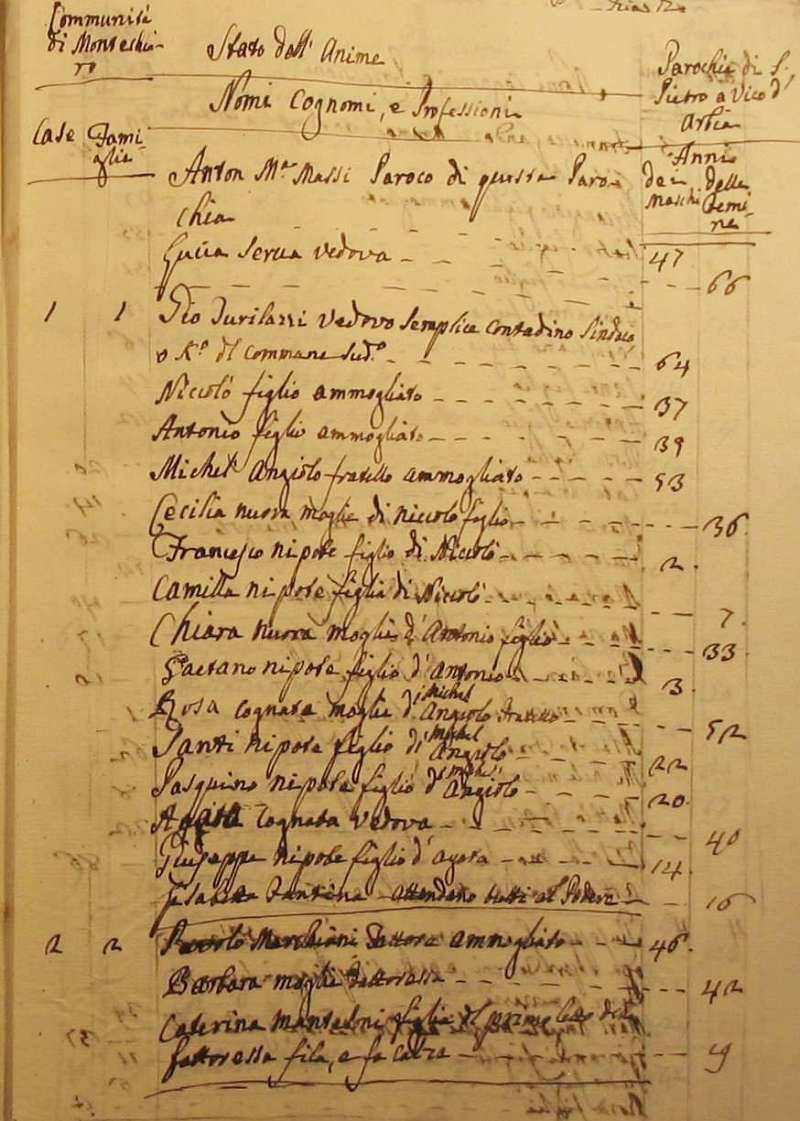 Communità
di Montechia-
ro
Stato dell' Anime
Parochia di S.
Pietro a Vico d'
Arbia
Nomi Cognomi, e Professioni
Case Fami-
glie
Anni
dei Maschi
delle Femi-
ne
Anton Mª Massi Paroco di questa Paro-
chia
47
Lucia serva vedova
66
1 1 Pio Turilazzi Vedovo Semplice Contadino Sindaco
del Commune Sudº 64
Niccolò figlio ammogliato 37
Antonio figlio ammogliato 39
Michel Angiolo fratello ammogliato 53
Cecilia nuora moglie di Niccolò figlio 36
Francesco nipote figlio di Niccolò 2
Camilla nipote figlia di Niccolò 7
Chiara nuora moglie d'Antonio figlio 33
Gaetano nipote figlio d'Antonio 3
Rosa cognata moglie di Michel Angiolo fratello 52
Santi nipote figlio di Michel Angiolo 22
Pasquino nipote figlio di Michel Angiolo 20
Agata Cognata Vedova 40
Giuseppe nipote figlio d'Agata 14
attendano tutti al Podere 16
2 2 Marchiani Fattore ammogliato 46
Barbara moglie Fattoressa 42
Caterina figlia del primo letto della
fattoressa fila, e fa calze 9